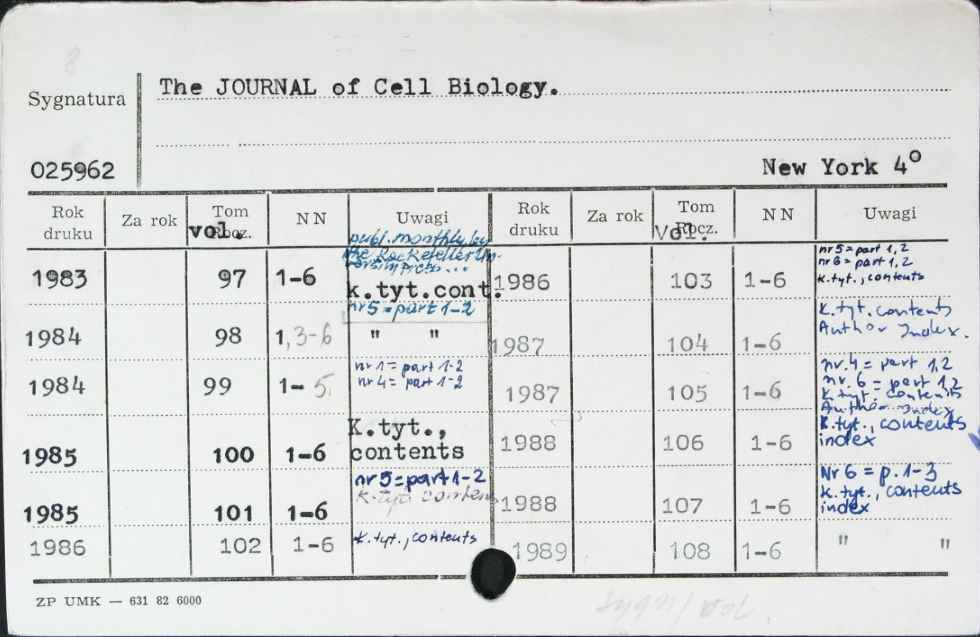 8
Sygnatura
The JOURNAL of Cell Biology.
025962
New York 4º
Rok druku Za rok Tom Rocz. vol. NN Uwagi Rok druku Za rok Tom Rocz. Vol. NN Uwagi
publ. monthly by
the Rockefeller Un-
1983 97 1-6 k.tyt.cont.
nr 5 = part 1-2
1984 98 1,3-6 " "
nr 1 = part 1-2
nr 4 = part 1-2
1984 99 1-5
K.tyt.,
contents
1985 100 1-6
nr 5 = part 1-2
k.tyt. contents
1985 101 1-6
1986 102 1-6 k.tyt., contents
nr 5 = part 1, 2
nr 6 = part 1, 2
k.tyt., contents
1986 103 1-6
k.tyt. contents
Author Index.
1987 104 1-6
nr. 4 = part 1,2
nr. 6 = part 1,2
k.tyt. contents
Author index
1987 105 1-6
k.tyt., contents
index
1988 106 1-6
Nr 6 = p. 1-3
k.tyt., contents
index
1988 107 1-6
1989 108 1-6 " "
ZP UMK — 631 82 6000